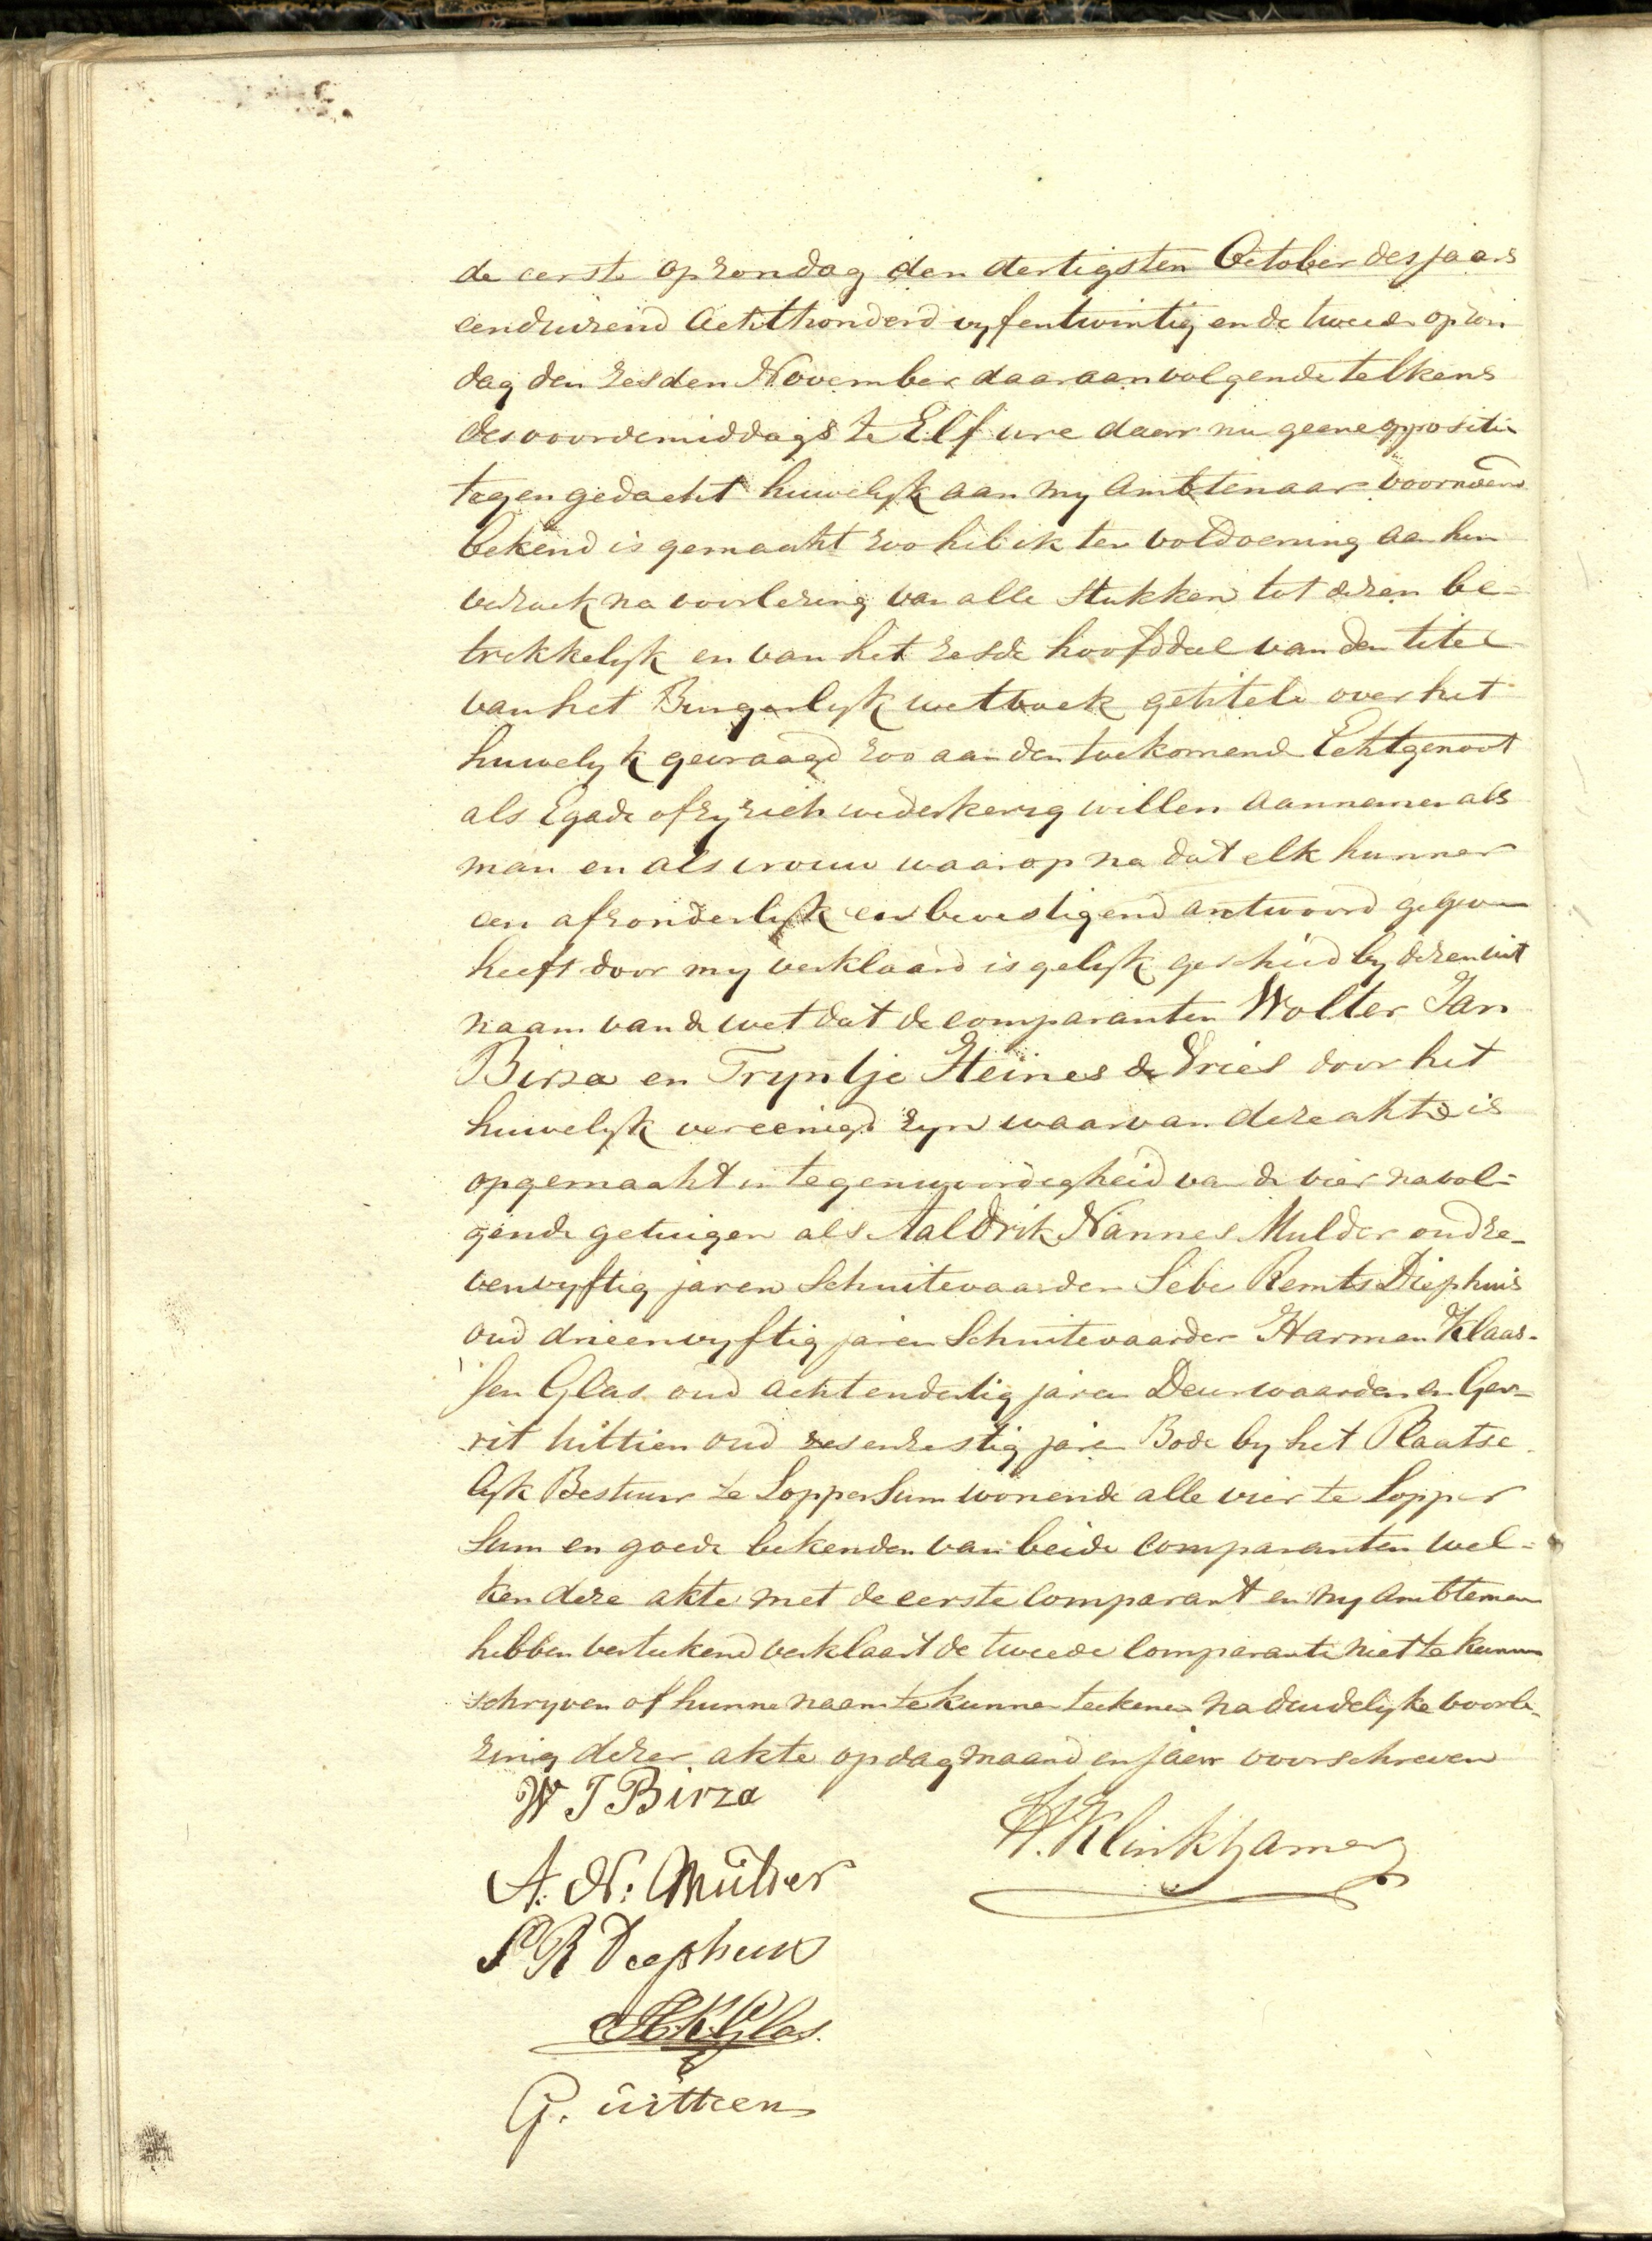 de eerste op zondag den dertigsten October des jaars
eenduizend achthonderd vyfentwintig en de tweede op zon
dag den zesden November daaraanvolgende telkens
des voordemiddags te Elf ure daar nu geene oppositie
tegen gedacht huwelyk aan my ambtenaar voornoemd
bekend is gemaakt zoo heb ik ter voldoening aan hun
verzoek na voorlezing van alle stukken tot dezen be=
trekkelyk en van het zesde hoofddeel van den titel
van het Burgerlyk wetboek getiteld over het
huwelyk gevraagd zoo aan den toekomende Echtgenoot
als Egade of zy zich wederkerig willen aannemen als
man en als vrouw waarop na dat elk hunner
een afzonderlyk en bevestigend antwoord gegeven
heeft door my verklaard is gelyk geschied by dezen uit
naam van de wet dat de comparanten Wolter Jan
Birza en Tryntje Heines de Vries door het
huwelyk vereenigd zyn waarvan deze akte is
opgemaakt in tegenwoordigheid van de vier navol=
gende getuigen als Aaldrik Nannes Mulder oud ze-
venvyftig jaren Schuitevaarder Sebe Remts Diephuis
oud drieenvyftig jaren Schuitevaarder Harman Klaas-
sen Glas oud achtendertig jaren Deurwaarder en Ger=
rit Uittien oud zesenzestig jaren Bode by het Plaatse
lyk Bestuur te Loppersum wonende alle vier te Lopper
sum en goede bekenden van beide comparanten wel=
ken deze akte met de eerste Comparant en my ambtenaar
hebben vertekend verklaart de tweede Comparante niet te kunnen
schryven of hunne naam te kunnen teekenen na duidelyke voorle=
zing dezer akte op dag maand en jaar voorschreven
W J Birza
H. Klinkhamer
A. N. Mulder
S R Diephuis
H. K. Glas.
G. uittien